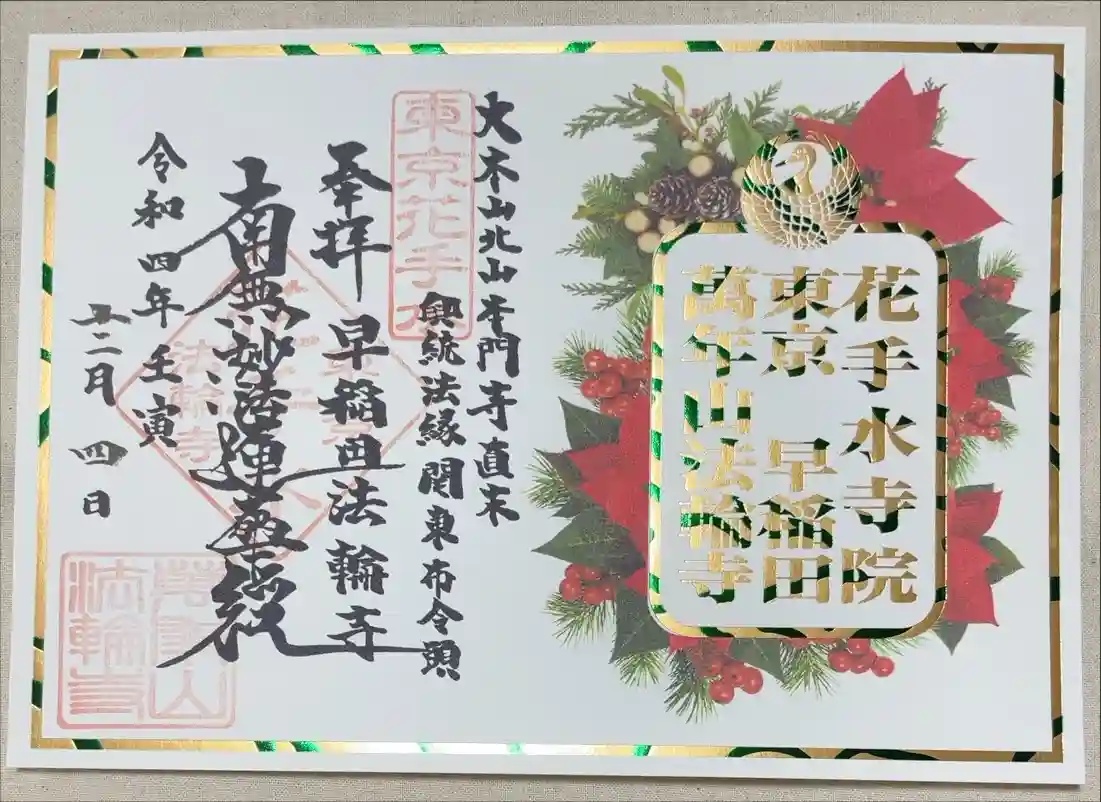 花手水寺院
東京 早稲田
萬年山法輪寺
大本山北山本門寺直末
興統法縁関東布令頭
東京花手水
奉拝 早稲田法輪寺
南無妙法蓮華経
令和四年壬寅
十二月 四日
法輪寺
萬年山
法輪寺